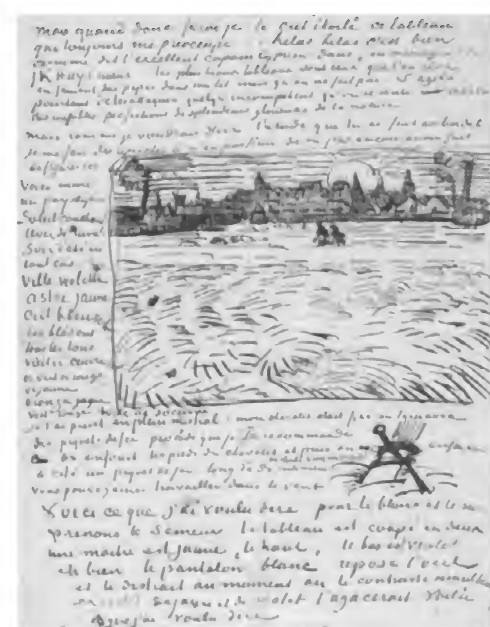 mais quand donc ferai je le Ciel étoilé ce tableau
qui toujours me préoccupe hélas hélas c'est bien
comme dit l'excellent copain Cyprien dans en ménage de
J K Huysmans les plus beaux tableaux sont ceux que l'on rêve
en fumant des pipes dans son lit mais qu'on ne fait pas. S'agit
pourtant de les attaquer quelqu'incompétent qu'on se sente vis à vis
des ineffables perfections de splendeurs glorieuses de la nature
Mais comme je voudrais voir l'étude que tu as fait au bordel
je me fais des
Voici encore
un paysage
Soleil couchant
lever de lune
Soir d'été en
tout cas
Ville violette
astre jaune
Ciel bleu vert
les blés ont
tous les tons
vieil or cuivre
or vert or rouge
or jaune
vert rouge
je l'ai peint en plein mistral. mon chevalet était fixé en terre avec
des piquets de fer procédé que je te recommande
on enfonce les pieds du chevalet et puis on enfonce
à côté un piquet de fer long de 50 centimètres
vous pouvez ainsi travailler dans le vent
Voici ce que j'ai voulu dire pour le blanc et le noir
prenons le Semeur le tableau est coupé en deux
une moitié est jaune, le haut, le bas est violet
eh bien le pantalon blanc repose l'oeil
et le distrait au moment où le contraste simultané
de jaune et de violet l'agacerait Voilà
ce que j'ai voulu dire